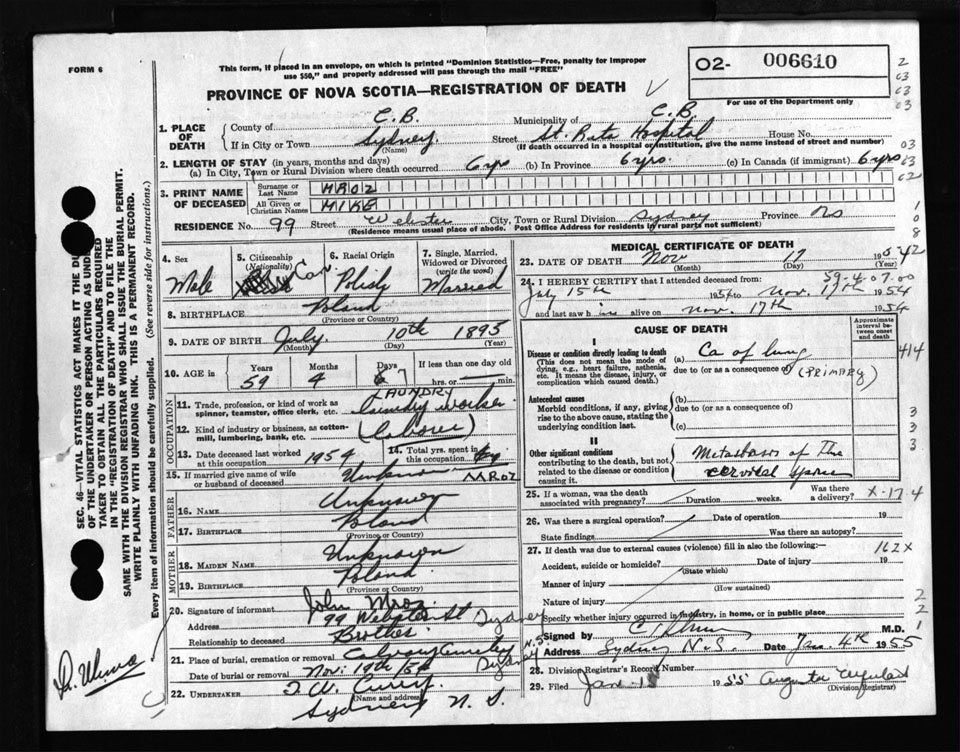 FORM 6
This form, if placed in an envelope, on which is printed "Dominion Statistics—Free, penalty for improper
use $50," and properly addressed will pass through the mail "FREE"
O2- 006610
PROVINCE OF NOVA SCOTIA—REGISTRATION OF DEATH
For use of the Department only
1. PLACE OF DEATH
County of C.B. Municipality of C.B.
If in City or Town Sydney. (Name) Street St. Rita Hospital House No.
(If death occurred in a hospital or institution, give the name instead of street and number)
2. LENGTH OF STAY (in years, months and days)
(a) In City, Town or Rural Division where death occurred 6 yrs (b) In Province 6 yrs. (c) In Canada (if immigrant) 6 yrs
3. PRINT NAME OF DECEASED
Surname or Last Name MROZ
All Given or Christian Names MIKE
RESIDENCE No. 99 Street Webster City, Town or Rural Division Sydney Province NS
(Residence means usual place of abode. Post Office Address for residents in rural parts not sufficient)
4. Sex Male
5. Citizenship (Nationality) Can
6. Racial Origin Polish
7. Single, Married, Widowed or Divorced (write the word) Married
8. BIRTHPLACE Poland
(Province or Country)
9. DATE OF BIRTH July 10th 1895
(Month) (Day) (Year)
10. AGE in Years 59 Months 4 Days 6 If less than one day old hrs. or min.
OCCUPATION
11. Trade, profession, or kind of work as spinner, teamster, office clerk, etc. LAUNDRY Laundry worker
12. Kind of industry or business, as cotton-mill, lumbering, bank, etc. (Laborer)
13. Date deceased last worked at this occupation 1954
14. Total yrs. spent in this occupation
15. If married give name of wife or husband of deceased MROZ
FATHER
16. NAME Unknown
17. BIRTHPLACE Poland
(Province or Country)
MOTHER
18. MAIDEN NAME Unknown
19. BIRTHPLACE Poland
(Province or Country)
20. Signature of informant John Mroz
Address 99 Webster St Sydney N.S.
Relationship to deceased Brother
21. Place of burial, cremation or removal Calvary Cemetery Sydney
Date of burial or removal Nov. 19th/54
22. UNDERTAKER T. W. Curry
(Name and address)
Sydney N. S.
MEDICAL CERTIFICATE OF DEATH
23. DATE OF DEATH Nov 17
(Month) (Day) (Year)
24. I HEREBY CERTIFY that I attended deceased from:
59-4-07.00
July 15th 1954 to Nov. 17th 1954
and last saw h im alive on Nov. 17th 1954
CAUSE OF DEATH
Approximate interval between onset and death
I
Disease or condition directly leading to death
(This does not mean the mode of dying, e.g., heart failure, asthenia, etc. It means the disease, injury, or complication which caused death.)
(a) Ca of lung
due to (or as a consequence of) (PRIMARY)
Antecedent causes
Morbid conditions, if any, giving rise to the above cause, stating the underlying condition last.
(b)
due to (or as a consequence of)
(c)
II
Other significant conditions
contributing to the death, but not related to the disease or condition causing it.
Metastases of the
cervical spine
25. If a woman, was the death associated with pregnancy? Duration weeks. Was there a delivery? X-17 4
26. Was there a surgical operation? Date of operation 19
State findings Was there an autopsy?
27. If death was due to external causes (violence) fill in also the following:— 162X
Accident, suicide or homicide? (State which) Date of injury 19
Manner of injury
(How sustained)
Nature of injury
Specify whether injury occurred in industry, in home, or in public place
Signed by M.D.
Address Sydney N.S. Date Jan. 4th 1955
28. Division Registrar's Record Number
29. Filed Jan 15 1955 Augusta
(Division Registrar)
SEC. 46—VITAL STATISTICS ACT MAKES IT THE DU
OF THE UNDERTAKER OR PERSON ACTING AS UNDE
TAKER TO OBTAIN ALL THE PARTICULARS REQUIRED
IN THE "REGISTRATION OF DEATH" AND TO FILE THE
SAME WITH THE DIVISION REGISTRAR WHO SHALL ISSUE THE BURIAL PERMIT.
WRITE PLAINLY WITH UNFADING INK. THIS IS A PERMANENT RECORD.
Every item of information should be carefully supplied. (See reverse side for instructions.)